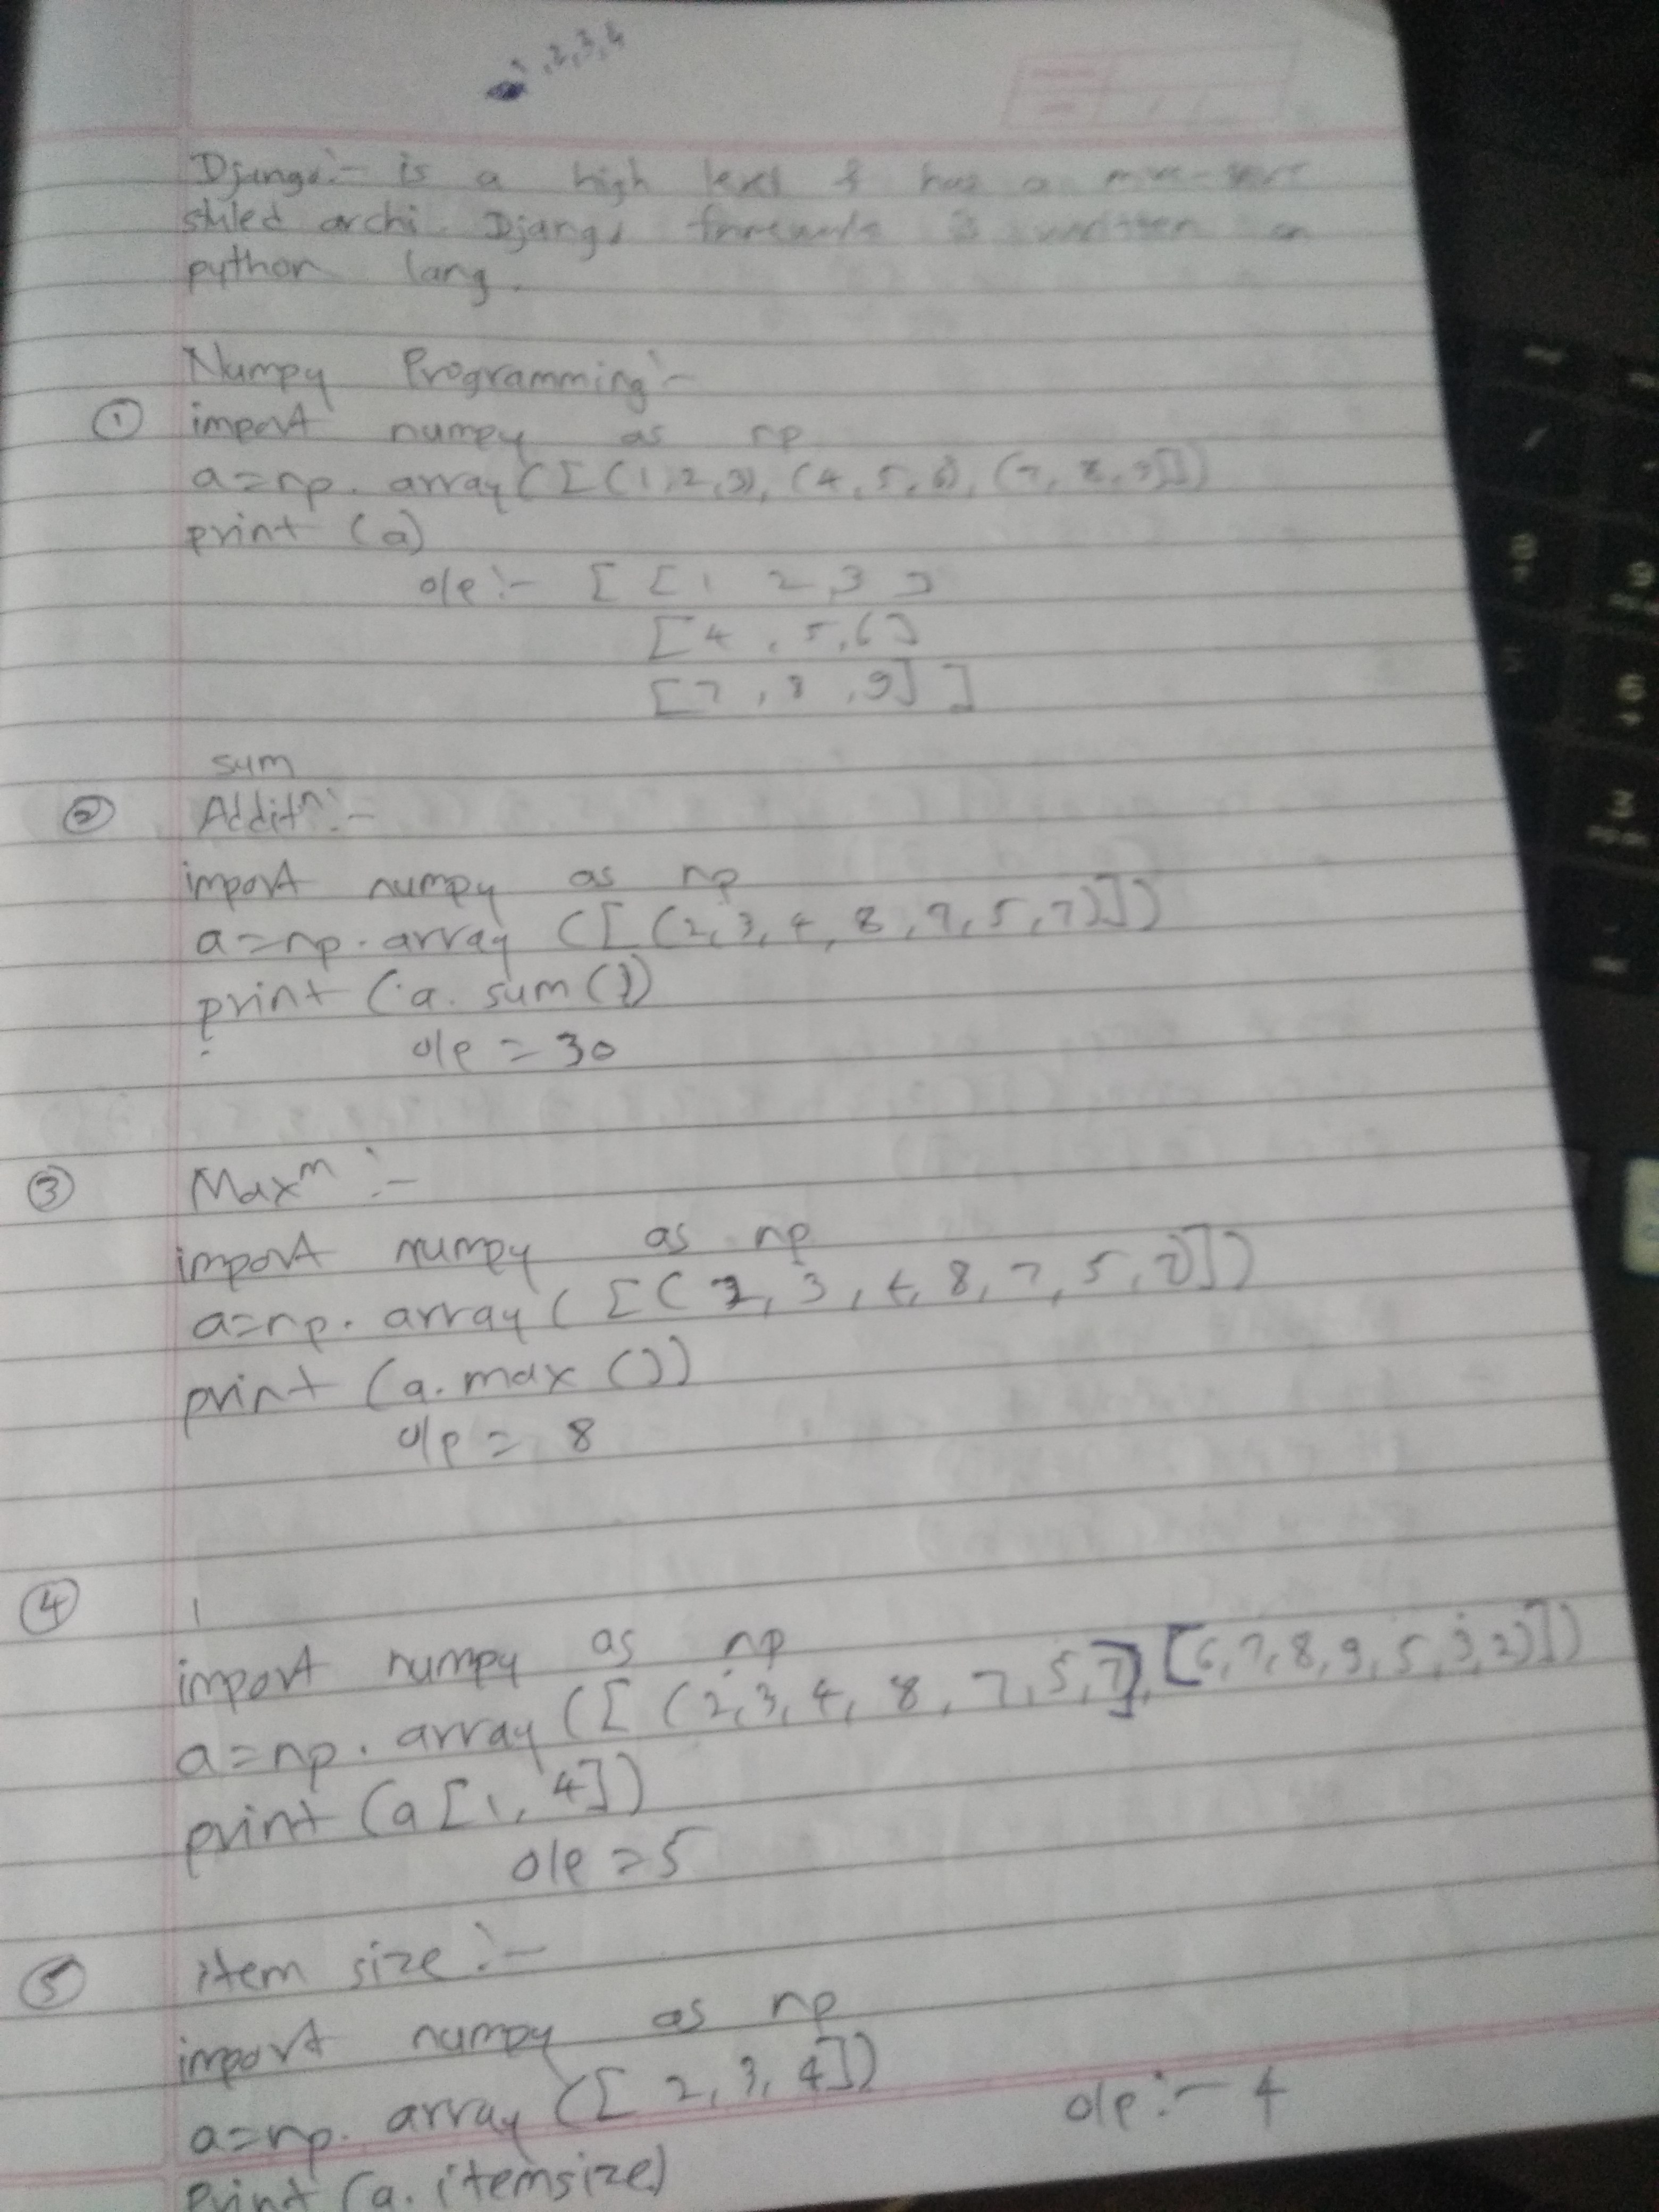 1,2,3,4
Django:- is a high level & has a mvc-mvt
stled archi. Django framework is written in
python lang.
Numpy Programming:-
① import numpy as np
a=np.array([(1,2,3),(4,5,6),(7,8,9)])
print (a)
o/p:- [[1 2,3]
[4,5,6]
[7,8,9]]
sum
② Additn:-
import numpy as np
a=np.array ([(2,3,4,8,7,5,7)])
print (a.sum())
o/p = 30
③ Maxm:-
import numpy as np
a=np.array([(2,3,4,8,7,5,7)])
print (a.max())
o/p = 8
④
import numpy as np
a=np.array([(2,3,4,8,7,5,7],[6,7,8,9,5,3,2)])
print (a[1,4])
o/p = 5
⑤ item size:-
import numpy as np
a=np.array([2,3,4])
o/p:- 4
Print (a.itemsize)